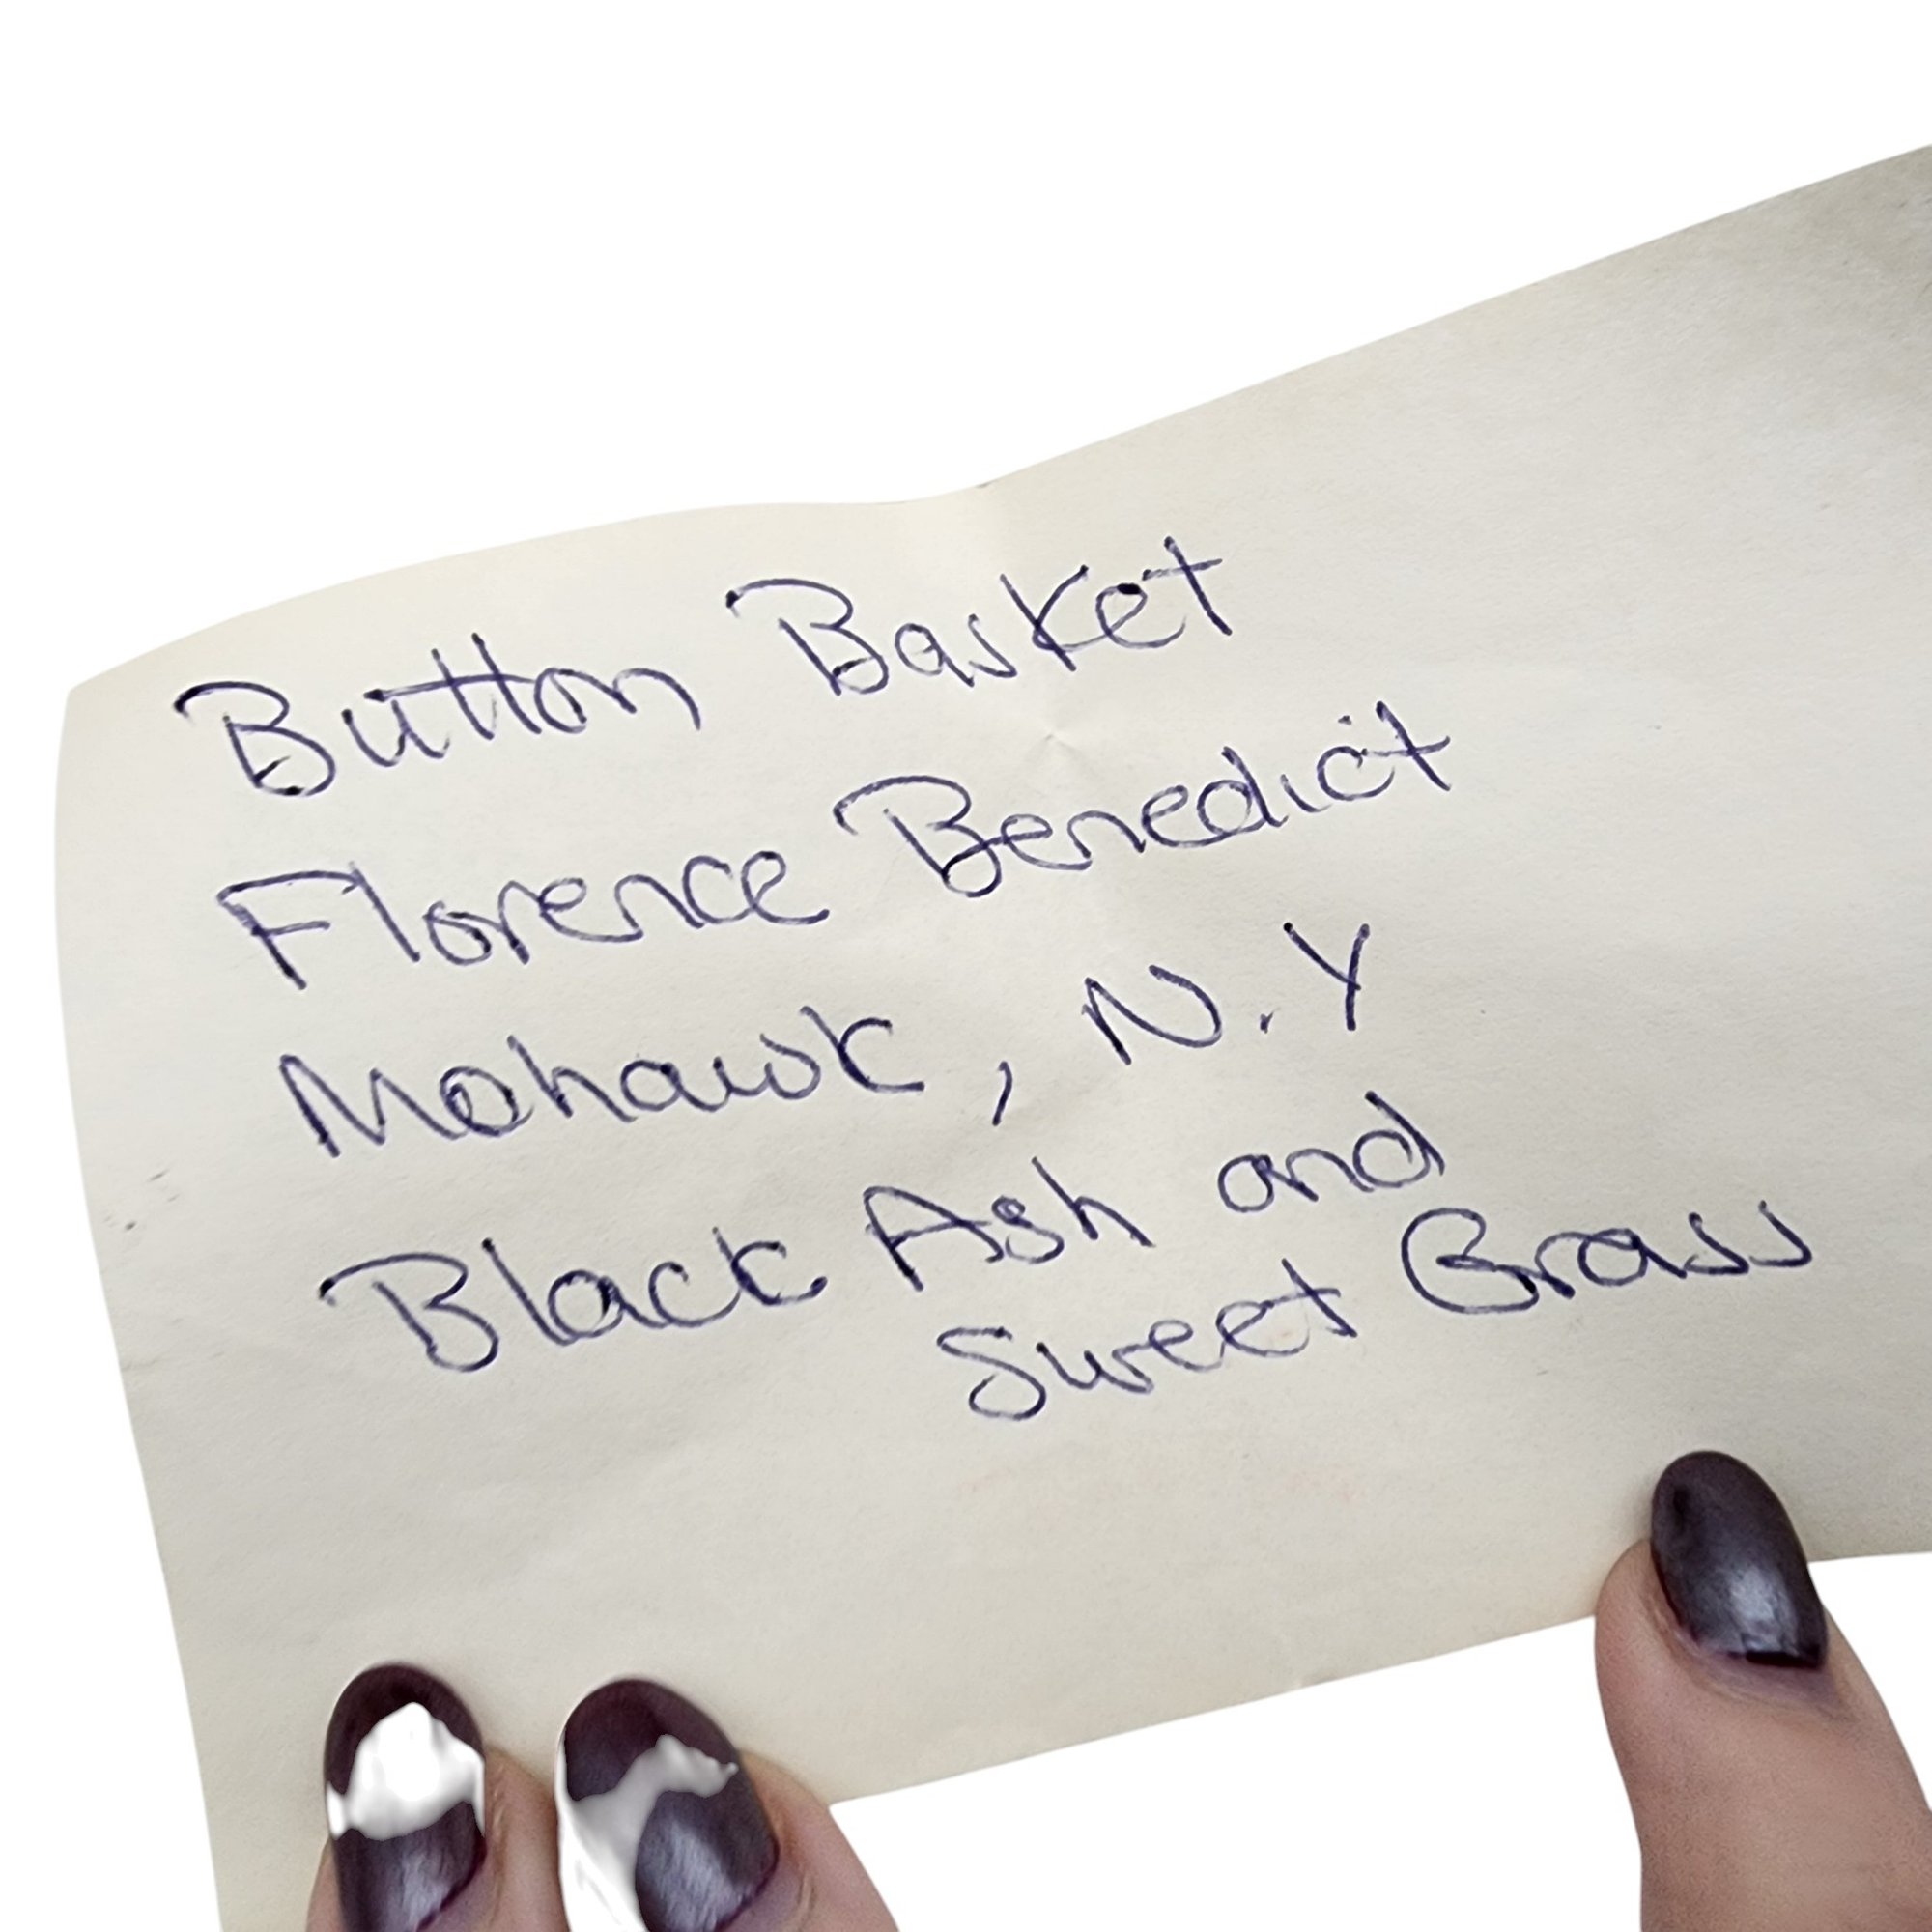 Button Basket
Florence Benedict
Mohawk, N.Y
Black Ash and
Sweet Grass